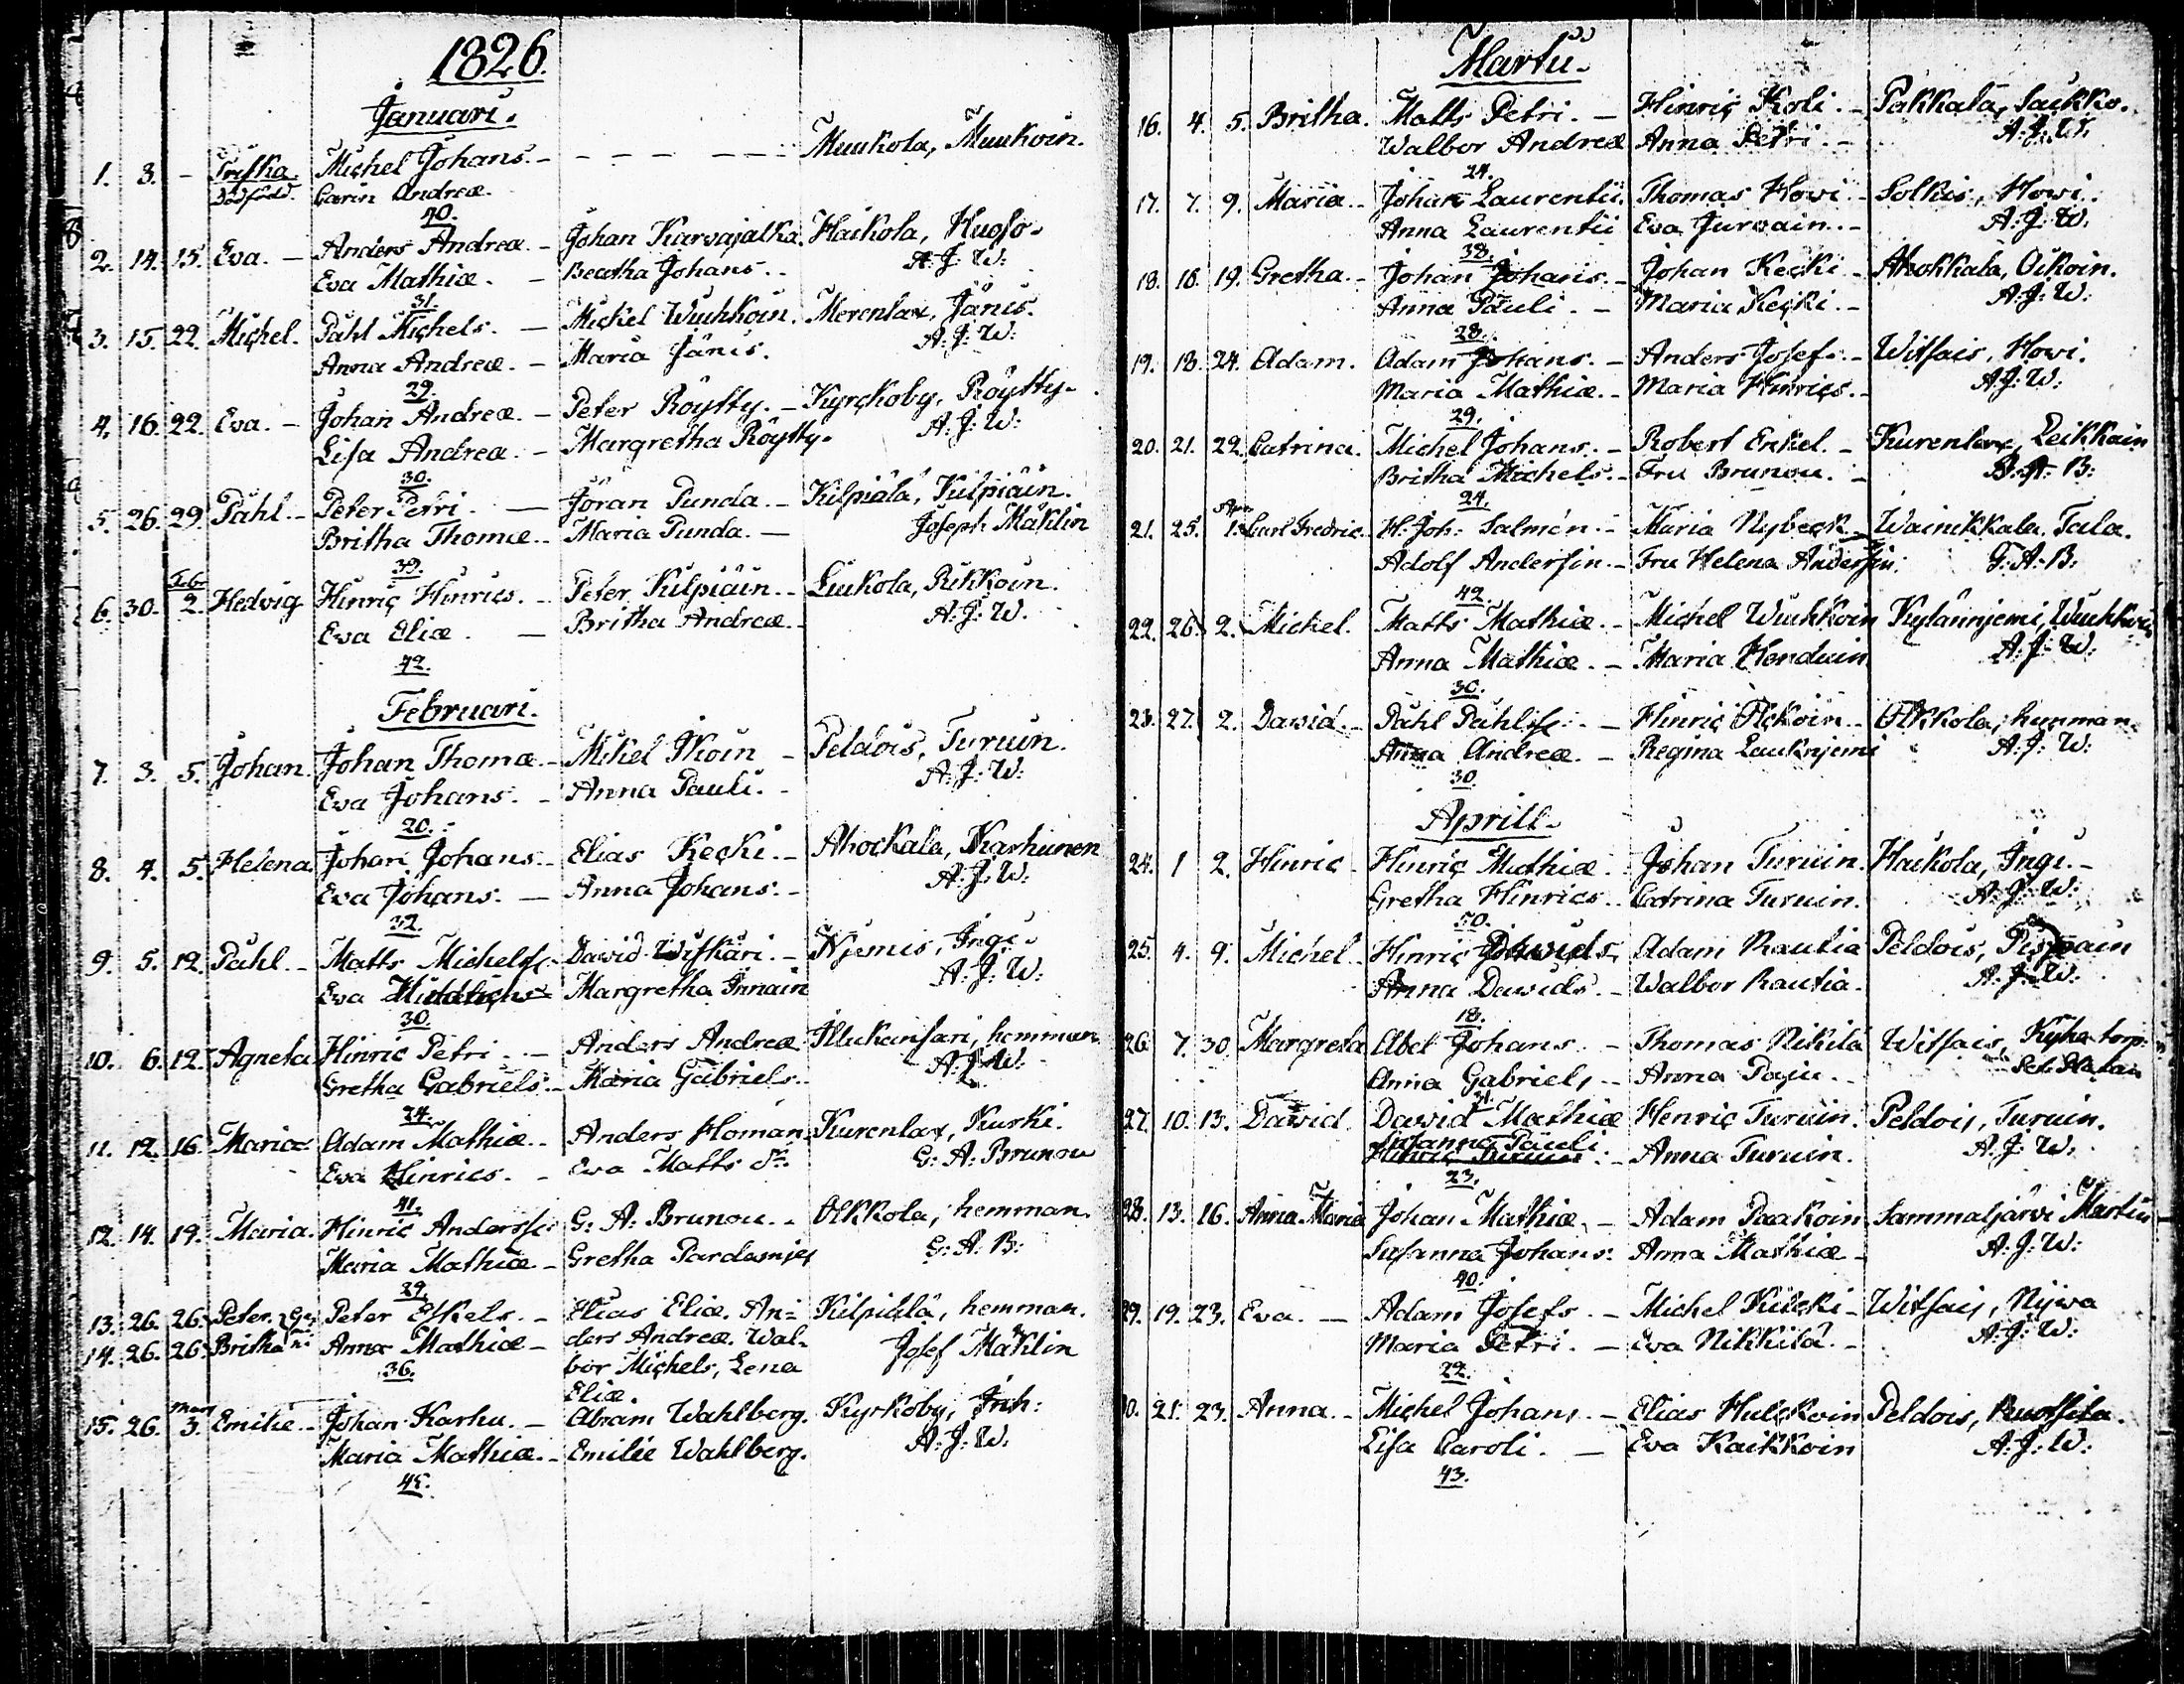 1826.
Januari.
1. 3. - Michel Johans. - - - - - - Muukola, Muukoin.
Dödfödd. Carin Andreæ.
40.
2. 14. 15. Eva. - Anders Andreæ - Johan Karvajalka. Haikola,
Eva Mathiæ. - Beatha Johans. - A: J: W:
31.
3. 15. 22. Michel. Påhl Michels. - Michel Wuohkoin. Merenlax, Jänis.
Anna Andreæ. - Maria Jänis. A: J: W:
29.
4. 16. 22. Eva. - Johan Andreæ. - Peter Röytty. - Kyrckoby, Röytty.
Lisa Andreæ. - Margretha Röytty. A: J: W:
30.
5. 26. 29. Påhl - Peter Petri. - Jöran Punda. - Kilpiälä, Kilpiäin.
Britha Thomæ. - Maria Punda. - Joseph Mäklin
39.
6. 30. Feb: 2. Hedvig Hinric Hinrics. - Peter Kilpiäin. - Luukola, Rikkoin.
Eva Eliæ. - Britha Andreæ. - A: J: W.
42.
Februari.
7. 3. 5. Johan. Johan Thomæ. - Mikel Ikoin - Peldois, Turuin.
Eva Johans. - Anna Pauli. - A: J: W:
20.
8. 4. 5. Helena. Johan Johans. - Elias Kecki. - Ahockala, Karhunen
Eva Johans. - Anna Johans. - A: J: W:
32.
9. 5. 12. Påhl - Matts Michelss. David Wiskari. - Niemis, Ingi.
Eva Margretha Innain A: J: W:
30.
10. 6. 12. Agneta Hinric Petri. - Anders Andreæ hemman.
Gretha Gabriels. - Maria Gabriels. - A: J: W:
24.
11. 12. 16. Maria Adam Mathiæ. - Anders Homan. Kurenlax, Kurki.
Eva Hinrics. - Eva Matts Dr. G: A: Brunou
41.
12. 14. 19. Maria. Hinric Anderss. G: A: Brunou. - Olkkola, hemman.
Maria Mathiæ - Gretha Pardasnies G: A: B:
29.
13. 26. 26. Peter. Peter Eskels. - Elias Eliæ. An- Kilpiälä, hemman.
14. 26. 26. Britha Anna Mathiæ - ders Andreæ. Wal- Josef Mäklin
36. bor Michels, Lena
Eliæ.
15. 26. Mars 3. Emilie - Johan Karhu. - Abram Wahlberg. Kyrkoby, Inh:
Maria Mathiæ. - Emilie Wahlberg. A: J: W:
45.
Martii.
16. 4. 5. Britha. Matts Petri. - Hinric Koli. - Pakkala, Saukko.
Walbor Andreæ Anna Petri. - A: J: W.
24.
17. 7. 9. Maria - Johan Laurentii. Thomas Howi. - Solkis, Howi.
Anna Laurentii Eva Jurvain. - A: J: W.
38.
18. 18. 19. Gretha. - Johan Johans. - Johan Kecki - Ahokkala, Oikoin.
Anna Pauli. - Maria Kecki. - A: J: W:
28.
19. 18. 24. Adam. Adam Johans. - Anders Josefs. - Witsais, Howi.
Maria Mathiæ. - Maria Hinrics. - A: J: W:
29.
20. 21. 22. Catrina. Michel Johans. - Robert Enkel. - Kurenlax, Leikkain
Britha Michels. - Fru Brunou. - G: A: B:
24.
21. 25. Apr: 1. Carl Fredric. H: Joh: Salmén. - Maria Nybeck Wainikkala, Tala.
Adolf Andersin. - Fru Helena Andersin. G: A: B:
42.
22. 26. 2. Michel. Matts Mathiæ. - Michel Wuohkoin Kylänniemi,
Anna Mathiæ. - Maria A: J: W:
30.
23. 27. 2. Dawid. - Påhl Påhlss. - Hinric Olckoin. - Olkkola, hemman
Anna Andreæ. - Regina Lauknjemi A: J: W:
30.
Aprill.
24. 1 2. Hinric - Hinric Mathiæ. Johan Turuin. Haikola, Ingi. -
Gretha Hinrics. - Catrina Turuin. A: J: W:
50.
25. 4. 9. Michel - Hinric Dawids. Adam Rautia Peldois,
Anna Dawids. - Walbor Rautia. A: J: W:
18.
26. 7. 30. Margreta Abel Johans. - Thomas Nikilä Witsais, torp.
Anna Gabriels. - Anna Paju. -
31.
27. 10. 13. Dawid. Dawid Mathiæ Henric Turuin. Peldois, Turuin.
Susanna Pauli - Anna Turuin. A: J: W.
23.
28. 13. 16. Anna Maria Johan Mathiæ. - Adam Paakoin Sammaljärvi Martin
Susanna Johans. Anna Mathiæ - A: J: W:
40.
29. 19. 23. Eva. - Adam Josefs. - Michel Kulcki - Witsais, Nijwa
Maria Petri. - Eva Nikkilä. - A: J: W:
22.
30. 21. 23. Anna. - Michel Johans. - Elias Hulckoin Peldois,
Lisa Caroli. - Eva Kaikkoin A: J: W:
43.